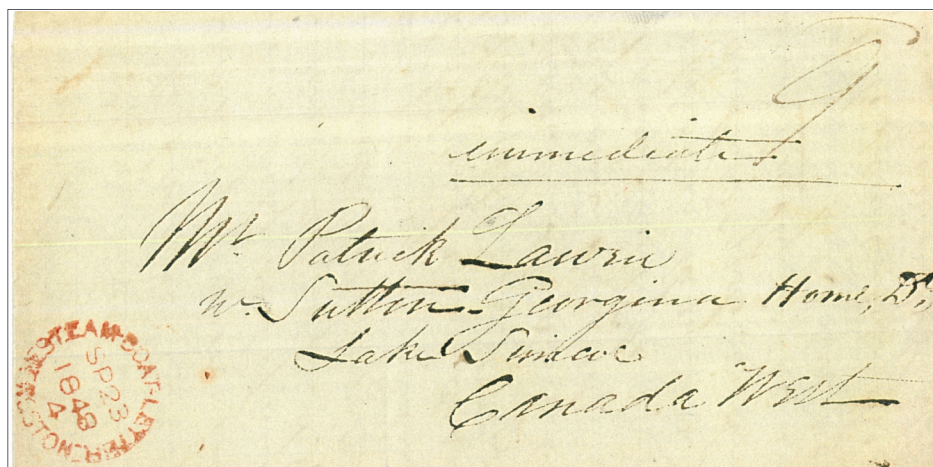 9
immediate
Mr. Patrick Lawrie
Sutton Georgina Home, D.
Lake Simcoe
Canada West
STEAM-BOAT-LETTER
SP 23
1848
4